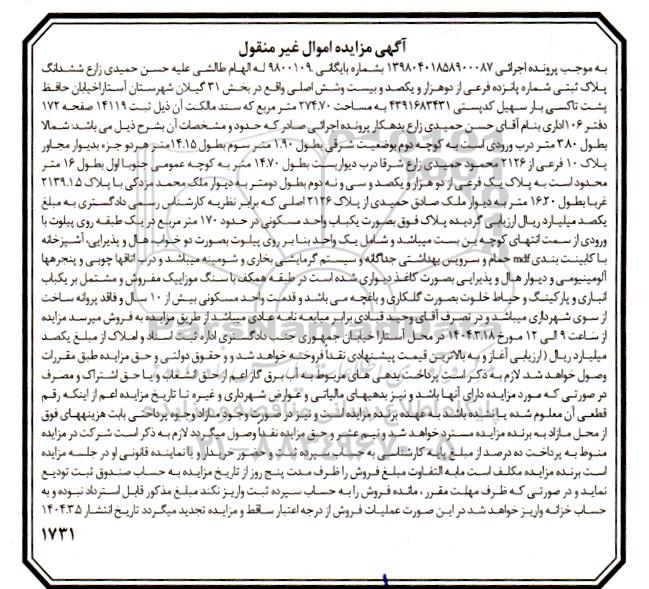 آگهی مزایده اموال غیر منقول
به موجب پرونده اجرائی ۱۳۹۸۰۴۰۱۸۵۸۹۰۰۰۸۷ بشماره بایگانی ۹۸۰۰۱۰۹ له الهام طالشی علیه حسن حمیدی زارع ششدانگ
پلاک ثبتی شماره پانزده فرعی از دوهزار و یکصد و بیست وشش اصلی واقع در بخش ۳۱ گیلان شهرستان آستارا خیابان حافظ
پشت تاکسی بار سهیل کدپستی ۴۳۹۱۶۸۳۴۳۱ به مساحت ۲۷۴.۷۰ متر مربع که سند مالکت آن ذیل ثبت ۱۴۱۱۹ صفحه ۱۷۲
دفتر ۱۰۶ اداری بنام آقای حسن حمیدی زارع بدهکار پرونده اجرائی صادر که حدود و مشخصات آن بشرح ذیل می باشد: شمالا
بطول ۳.۸۰ متر درب ورودی است به کوچه دوم بوضعیت شرقی بطول ۱.۹۰ متر سوم بطول ۱۴.۱۵ متر هر دو جزء بدیوار مجاور
پلاک ۱۰ فرعی از ۲۱۲۶ محمود حمیدی زارع شرقا درب دیواریست بطول ۱۴.۷۰ متر به کوچه عمومی جنوبا اول بطول ۱۶ متر
محدود است به پلاک یک فرعی از دو هزار و یکصد و سی و نه دوم بطول دومتر به دیوار ملک محمد مزدکی با پلاک ۲۱۳۹.۱۵
غربا بطول ۱۶.۲۰ متر به دیوار ملک صادق حمیدی از پلاک ۲۱۲۶ اصلی که برابر نظریه کارشناس رسمی دادگستری به مبلغ
یکصد میلیارد ریال ارزیابی گردیده پلاک فوق بصورت یکباب واحد مسکونی در حدود ۱۷۰ متر مربع در یک طبقه روی پیلوت با
ورودی از سمت انتهای کوچه بن بست میباشد و شامل یک واحد بنا بر روی پیلوت بصورت دو خواب، هال و پذیرایی، آشپزخانه
با کابینت بندی mdf حمام و سرویس بهداشتی جداگانه و سیستم گرمایشی بخاری و شومینه میباشد و درب اتاقها چوبی و پنجرهها
آلومینیومی و دیوار هال و پذیرایی بصورت کاغذ دیواری شده است در طبقه همکف با سنگ موزاییک مفروش و مشتمل بر یکباب
انباری و پارکینگ و حیاط خلوت بصورت گلکاری و باغچه می باشد و قدمت واحد مسکونی بیش از ۱۰ سال و فاقد پروانه ساخت
از سوی شهرداری میباشد و در تصرف آقای وحید قبادی برابر مبایعه نامه عادی میباشد از طریق مزایده به فروش میرسد مزایده
از ساعت ۹ الی ۱۲ مورخ ۱۴۰۴.۳.۱۸ در محل آستارا خیابان جمهوری جنب دادگستری اداره ثبت اسناد و املاک از مبلغ یکصد
میلیارد ریال (ارزیابی) آغاز و به بالاترین قیمت پیشنهادی نقدا فروخته خواهد شد و حقوق دولتی و حق مزایده طبق مقررات
وصول خواهد شد لازم به ذکر است پرداخت بدهی های مربوط به آب برق گاز اعم از حق انشعاب و یا حق اشتراک و مصرف
در صورتی که مورد مزایده دارای آنها باشد و نیز بدهیهای مالیاتی و عوارض شهرداری و غیره تا تاریخ مزایده اعم از اینکه رقم
قطعی آن معلوم شده یا نشده باشد به عهده برنده مزایده است و نیز در صورت وجود مازاد وجوه پرداختی بابت هزینههای فوق
از محل مازاد به برنده مزایده مسترد خواهد شد و نیم عشر و حق مزایده نقدا وصول میگردد لازم به ذکر است شرکت در مزایده
منوط به پرداخت ده درصد از مبلغ پایه کارشناسی به حساب سپرده ثبت و حضور خریدار و یا نماینده قانونی او در جلسه مزایده
است برنده مزایده مکلف است مابه التفاوت مبلغ فروش را ظرف مدت پنج روز از تاریخ مزایده به حساب صندوق ثبت تودیع
نماید و در صورتی که ظرف مهلت مقرر، مانده فروش را به حساب سپرده ثبت واریز نکند مبلغ مذکور قابل استرداد نبوده و به
حساب خزانه واریز خواهد شد در این صورت عملیات فروش از درجه اعتبار ساقط و مزایده تجدید میگردد تاریخ انتشار ۱۴۰۴.۳.۵
۱۷۳۱
ParsNamadData